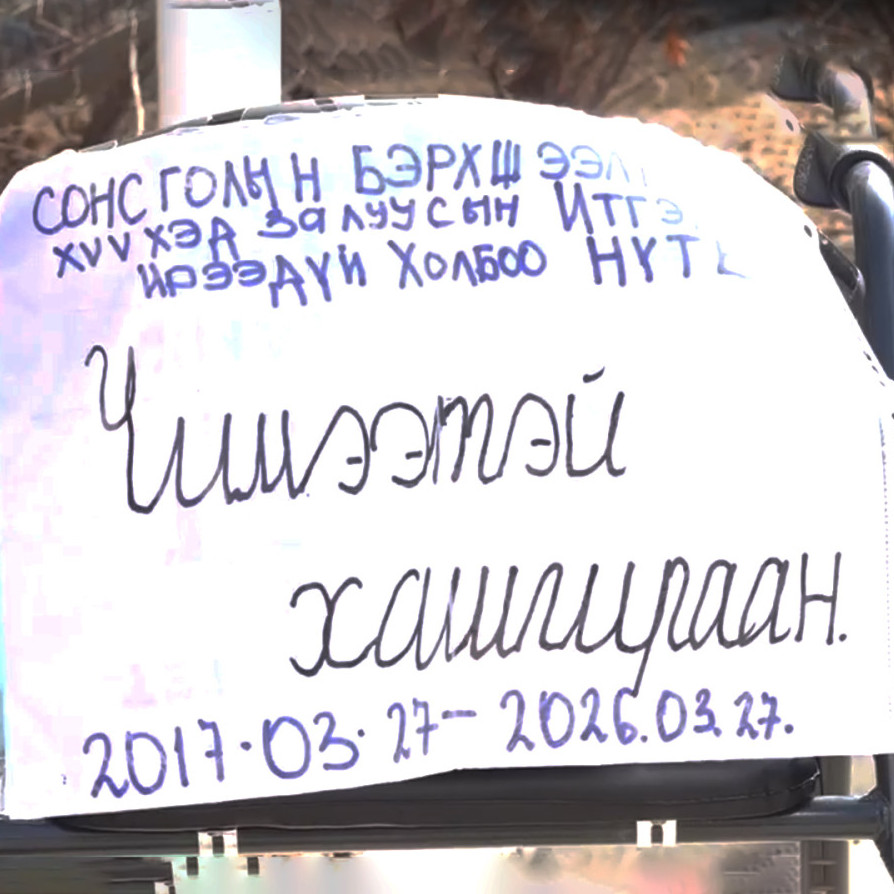 СОНСГОЛЫН БЭРХШЭЭЛ
ХҮҮХЭД ЗАЛУУСЫН ИТГЭ
ИРЭЭДҮЙ ХОЛБОО НҮТ
Чимээтэй
хашгираан.
2017.03.27-2026.03.27.